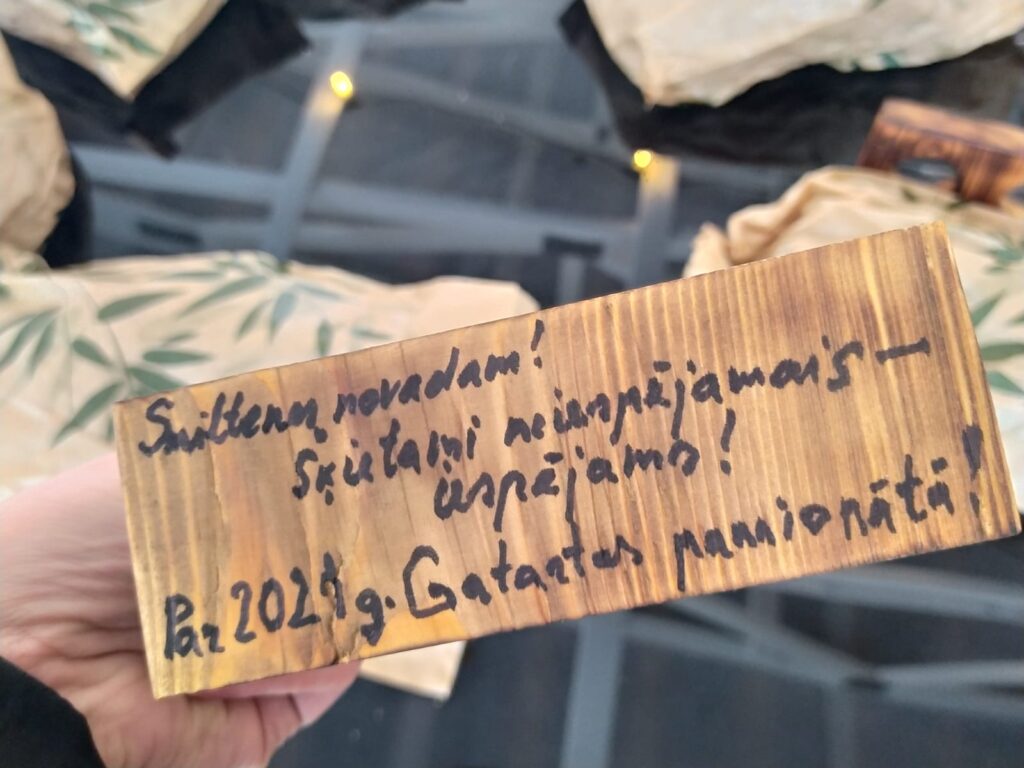 Smiltenes novadam!
Šķietami neiespējamais —
iespējams!
Par 2021 g. Gatartas pansionātā!